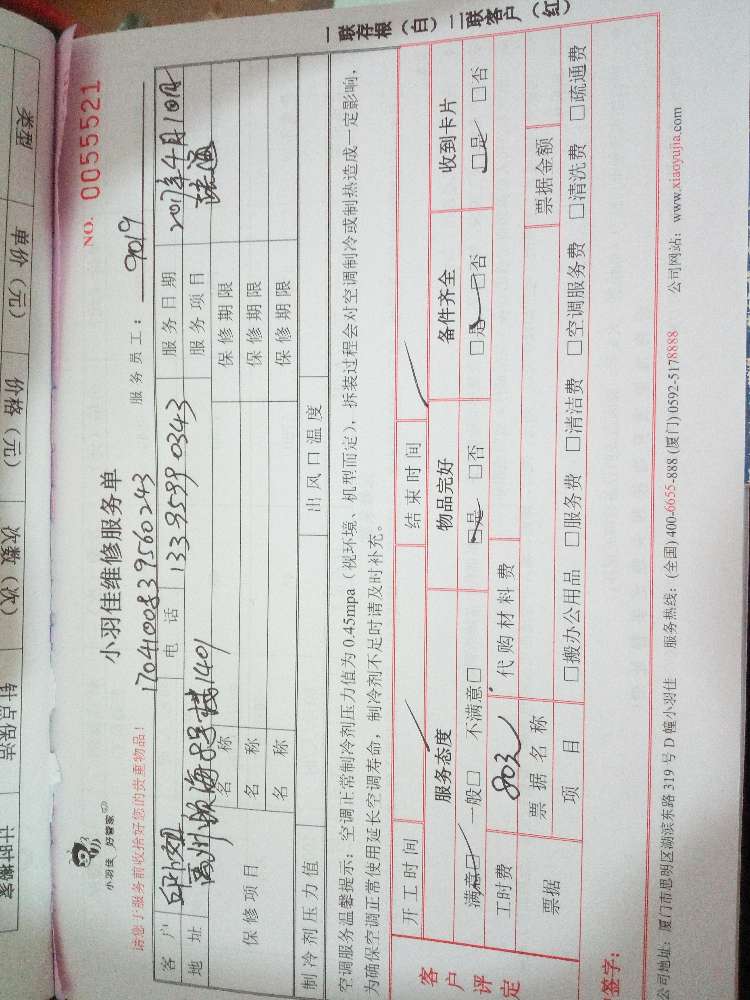 小羽佳 好管家
小羽佳维修服务单
NO. 0055521
请您于服务前收拾好您的贵重物品!
1704100839560243
服务员工: 9019
客户
电话 133 9599 0343
服务日期 2017年4月10日
地址
1401
服务项目
保修项目
名称 保修期限
名称 保修期限
名称 保修期限
制冷剂压力值 出风口温度
空调服务温馨提示:空调正常制冷剂压力值为0.45mpa(视环境、机型而定),拆装过程会对空调制冷或制热造成一定影响,
为确保空调正常使用延长空调寿命,制冷剂不足时请及时补充。
客户评定
开工时间 结束时间
服务态度 物品完好 备件齐全 收到卡片
满意□ 一般□ 不满意□ □是 □否 □是 □否 □是 □否
工时费 80元 代购材料费
票据 票据名称 票据金额
项目 □搬办公用品 □服务费 □清洁费 □空调服务费 □清洗费 □疏通费
签字:
公司地址:厦门市思明区湖滨东路319号D幢小羽佳 服务热线:(全国) 400-6655-888 (厦门) 0592-5178888 公司网站:www.xiaoyujia.com
一联存根(白)二联客户(红)
类型 单价(元) 价格(元) 次数(次) 钟点保洁 计时搬家